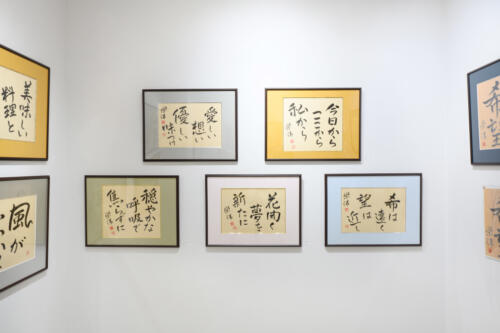 美味しい
料理と
風が
愛しい
想い
優しい
味つけ
今日から
ここから
私から
穏やかな
呼吸で
焦らずに
花開く
夢を
新たに
希は
遠く
望は
希望